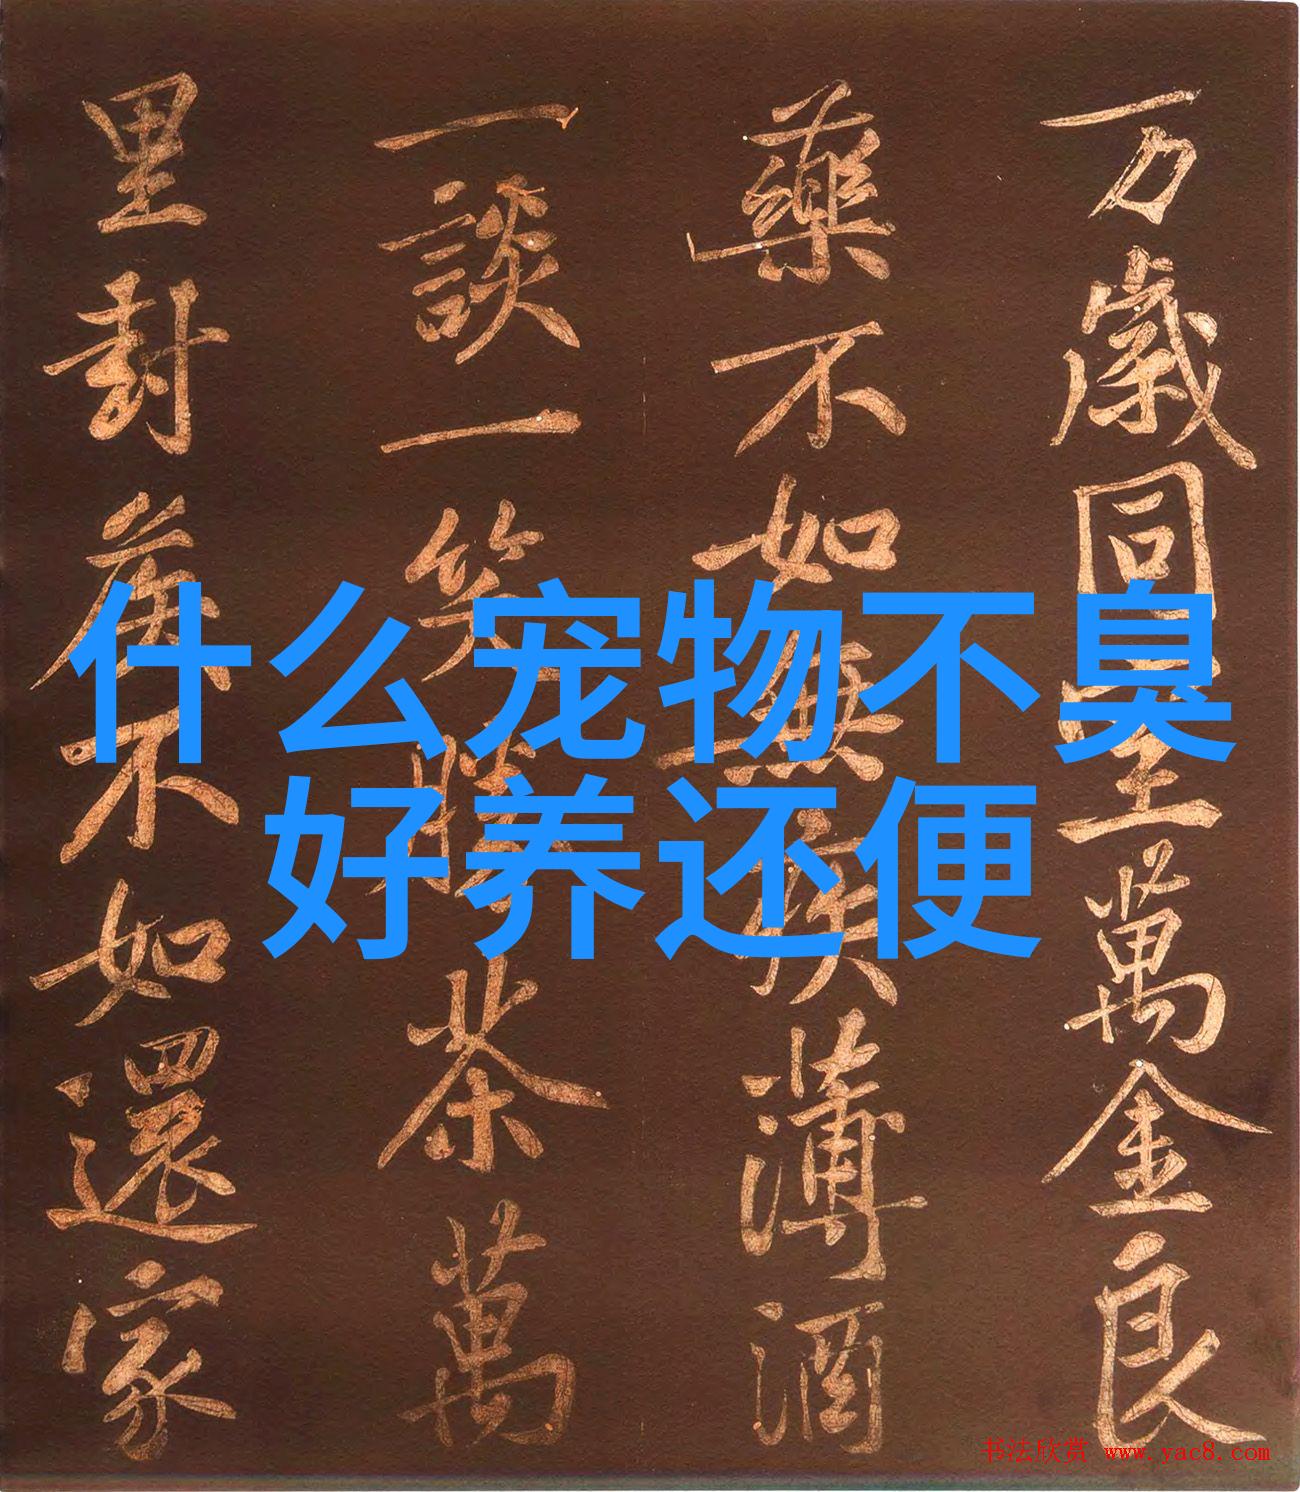 万歲同聖萬金良
藥不如無疾薄酒
一談一笑勝茶萬
里封侯不如還家
什么宠物不臭
好养还便
书法欣赏 www.yac8.com